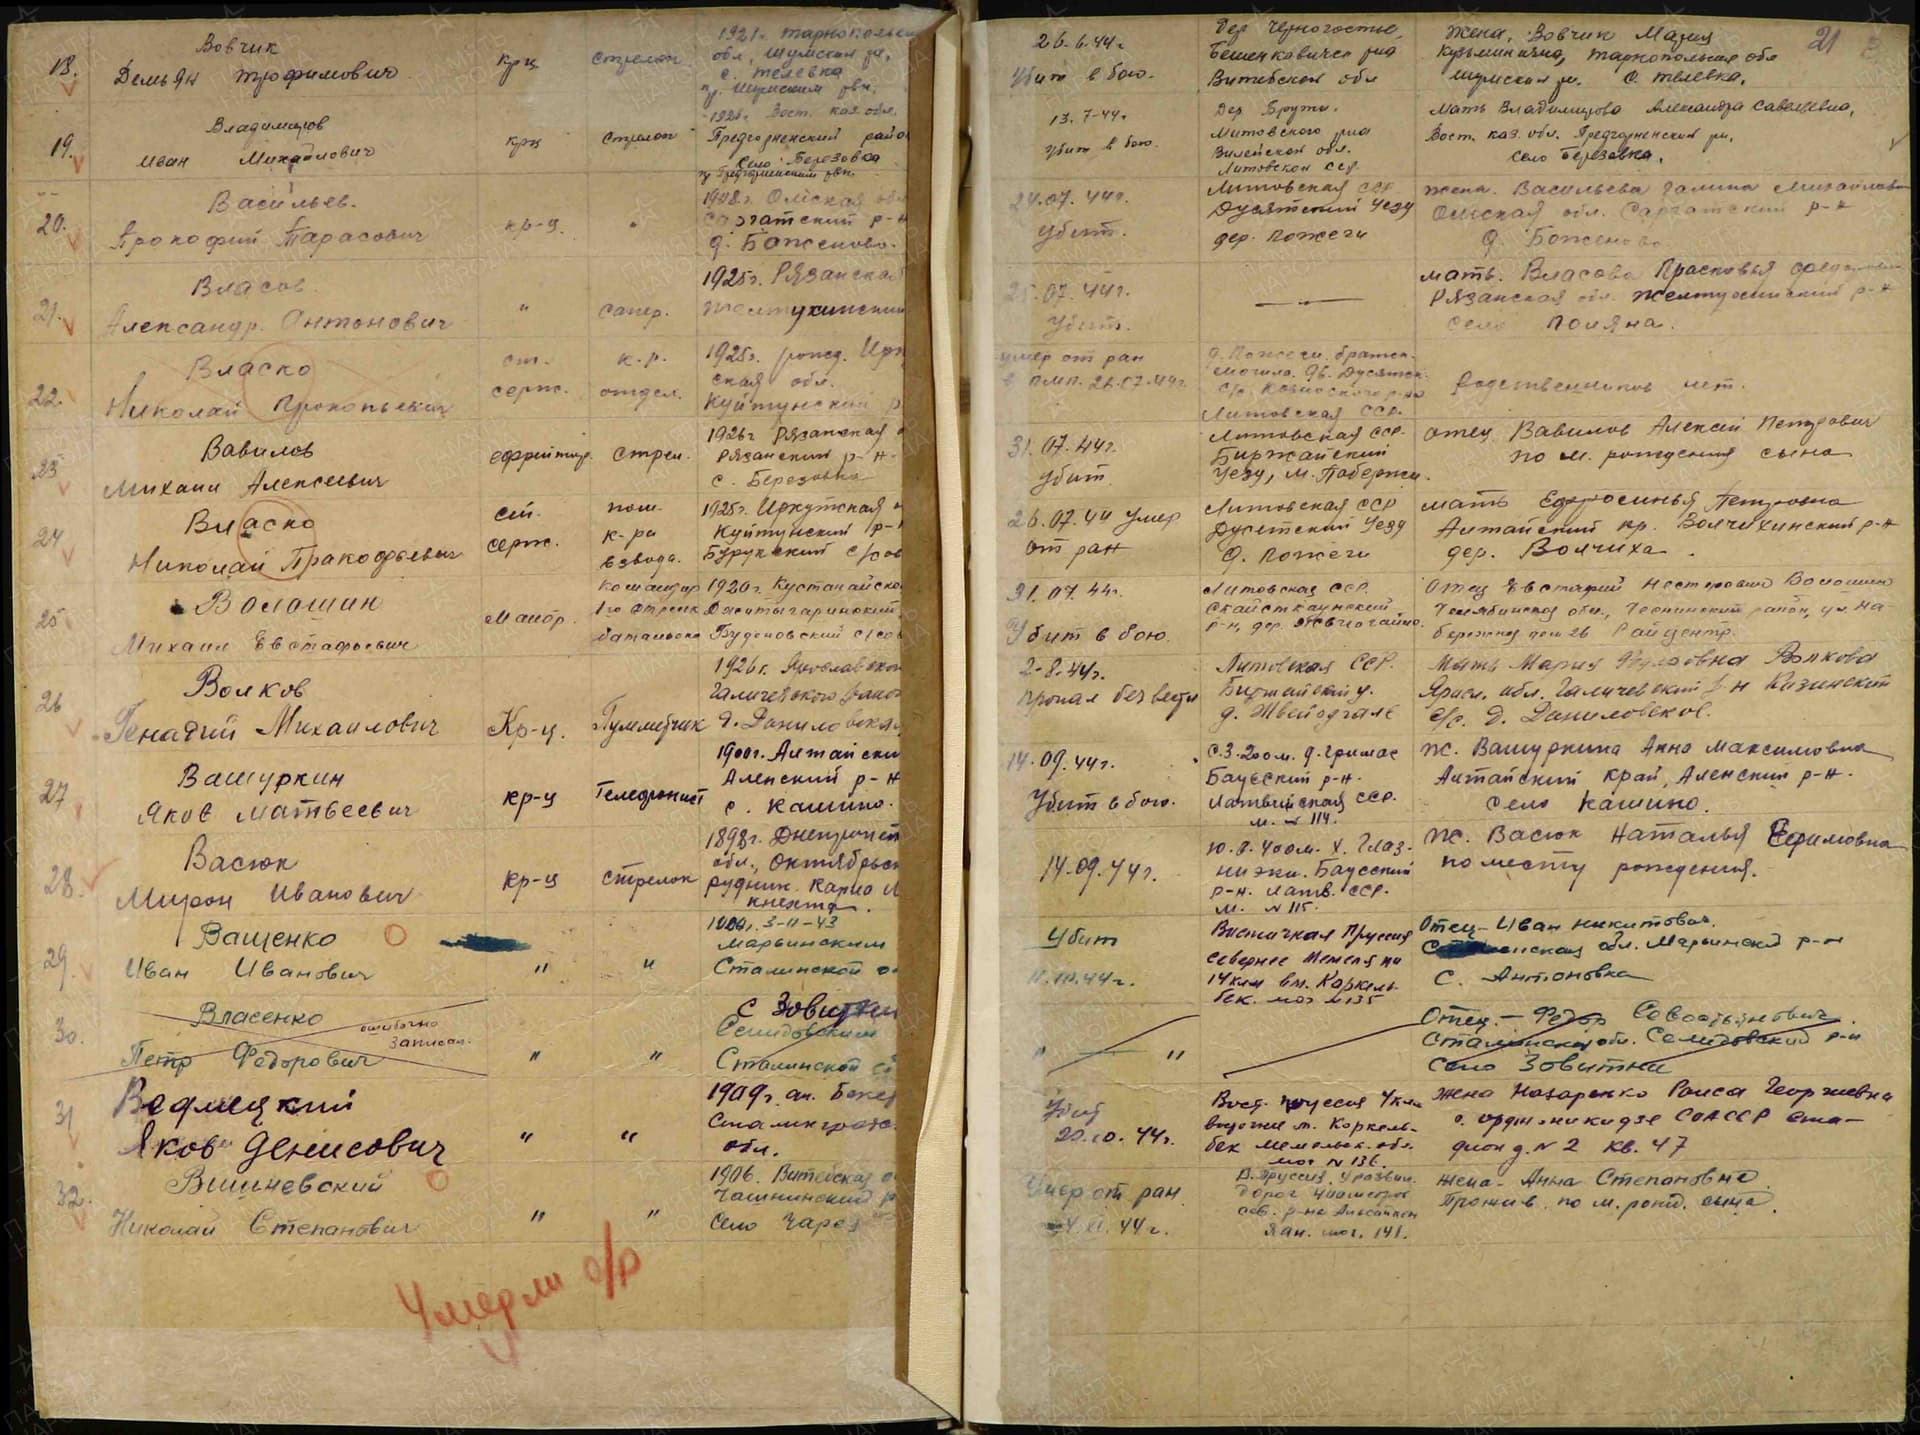 21
18.
Вовчик
Демьян Трофимович
крц
стрелок
1921г. Тарнопольск
обл, Шумский рн,
с. Телевка
Шумским рвк.
26.6.44г.
Убит в бою.
Дер. Черногостье,
Бешенковичск рна
Витебской обл
Жена, Вовчик Мария
Кузьминична, Тарнопольская обл
Шумский рн. с. Телевка.
19.
Владимиров
Иван Михайлович
крц
стрелок
Вост. каз. обл.
Предгорненский райо
село Березовка
Предгорненским рвк.
13.7-44г.
Убит в бою.
Дер.
Литовского рна
Вилейской обл.
Литовской сср
Мать Владимирова Александра Савельевна,
Вост. каз. обл. Предгорненский рн,
село Березовка.
20.
Васильев.
Прокофий Тарасович
кр-ц.
"
1908г. Омская обл
Саргатский р-н
д. Баженово.
24.07.44г.
Убит.
Литовская сср
Дусятский уезд
дер. Пожеги
жена. Васильева Галина Михайловна
Омская обл. Саргатский р-н
д. Баженово
21.
Власов.
Александр Антонович
"
сапер.
1925г. Рязанская
Желтухинский
25.07.44г.
Убит.
— " —
мать. Власова Прасковья
Рязанская обл. Желтухинский р-н
село Поляна.
22.
Власко
Николай Прокопьевич
ст.
серж.
к-р.
отдел.
1925г. рожд. Ирк
ская обл.
Куйтунский р
умер от ран
в ПМП. 26.07.44г.
д. Пожеги братск.
могила. Дусятск.
Литовская ССР.
Родственников нет.
23
Вавилов
Михаил Алексеевич
ефрейтор.
стрел.
1926г Рязанская
Рязанский р-н
с. Березовка
31.07.44г.
Убит
Литовская сср.
Биржайский
уезд, м. Пабержи.
отец Вавилов Алексей Петрович
по м. рождения сына
24
Власко
Николай Прокофьевич
ст.
серж.
пом.
к-ра
взвода.
1925г. Иркутская
Куйтунский р-н
Бурукский с/сов
26.07.44 умер
от ран
Литовская сср
Дусетский уезд
д. Пожеги
мать Ефросинья Петровна
Алтайский кр. Волчихинский р-н
дер. Волчиха.
25
Волошин
Михаил Евстафьевич
Майор.
Командир
1го стрелк
батальона
1920г. Кустанайско
Джитыгаринский
Буденовский с/сов
31.07.44г.
Убит в бою.
Литовская ССР.
р-н, дер.
Отец Евстафий Нестерович Волошин
Челябинская обл., район, ул. На
бережная дом 26 Райцентр.
26
Волков
Генадий Михаилович
Кр-ц.
Пуллеметчик
1926г. Ярославской
Галичевского район
д. Даниловская
2-8.44г.
пропал без вести
Литовская ССР.
Биржайский у.
д. Жвейодгале
Мать Мария Волкова
Яросл. обл. Галичевский р-н
с/с. д. Даниловское.
27
Вашуркин
Яков Матвеевич
кр-ц
Телефонист
1900г. Алтайски
Аленский р-н
с. Кашино.
14.09.44г.
Убит в бою.
с.з. 200м. д. Гримас
Баусский р-н.
Латвийская сср.
м. № 114.
ж. Вашуркина Анна Максимовна
Алтайский край, Аленский р-н.
село Кашино.
28.
Васюк
Мирон Иванович
кр-ц
стрелок
1898г. Днепропет
обл., Октябрьск
рудник. Карло Л
кнехта.
14.09.44г.
ю.в. 400м. х. Глаз-
Баусский
р-н. Латв. сср.
м. № 115.
ж. Васюк Наталья Ефимовна
по месту рождения.
29.
Ващенко
Иван Иванович
"
"
3-11-43
Марьинским
Сталинской о
Убит
11.10.44г.
Восточная Пруссия
севернее Мемеля на
14 клм вм. Коркель-
бек. мог № 135
Отец-Иван Никитович.
обл. Марьинский р-н
с. Антоновка
30.
Власенко
Петр Федорович
ошибочно
записан.
"
"
с Зовитни
Селидовским
Сталинской об
" — "
Отец.-Федор Севостьянович.
Сталинская обл. Селидовский р-н
село Зовитни
31
Ведмецкий
Яков Денисович
"
"
1909г.
Сталинград.
обл.
Убит
20.10.44г.
Вост. Пруссия 4 клм
м. Коркель-
бек Мемельск. обл.
мог № 136.
Жена Назаренко Раиса Георгиевна
г. Орджоникидзе СОАССР Ста-
дион д. № 2 кв. 47
32.
Вишневский
Николай Степанович
"
"
1906. Витебская о
Чашнинский р
село Чарез
Умер от ран
4.XI.44г.
В. Пруссия,
дорог
мог. 141.
Жена-Анна Степановна
Прожив. по м. рожд. сына.
Умерли о/р